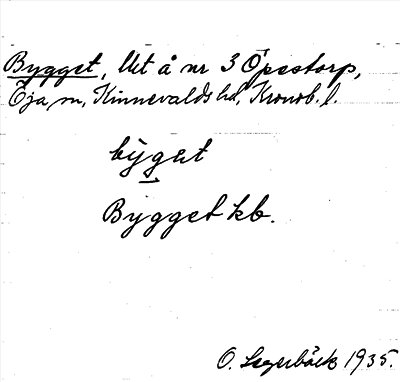 Bygget, Ut å nr 3 Öpestorp,
Öja sn, Kinnevalds hd, Kronob. l.
by̆get
Bygget kb.
O. 1935.